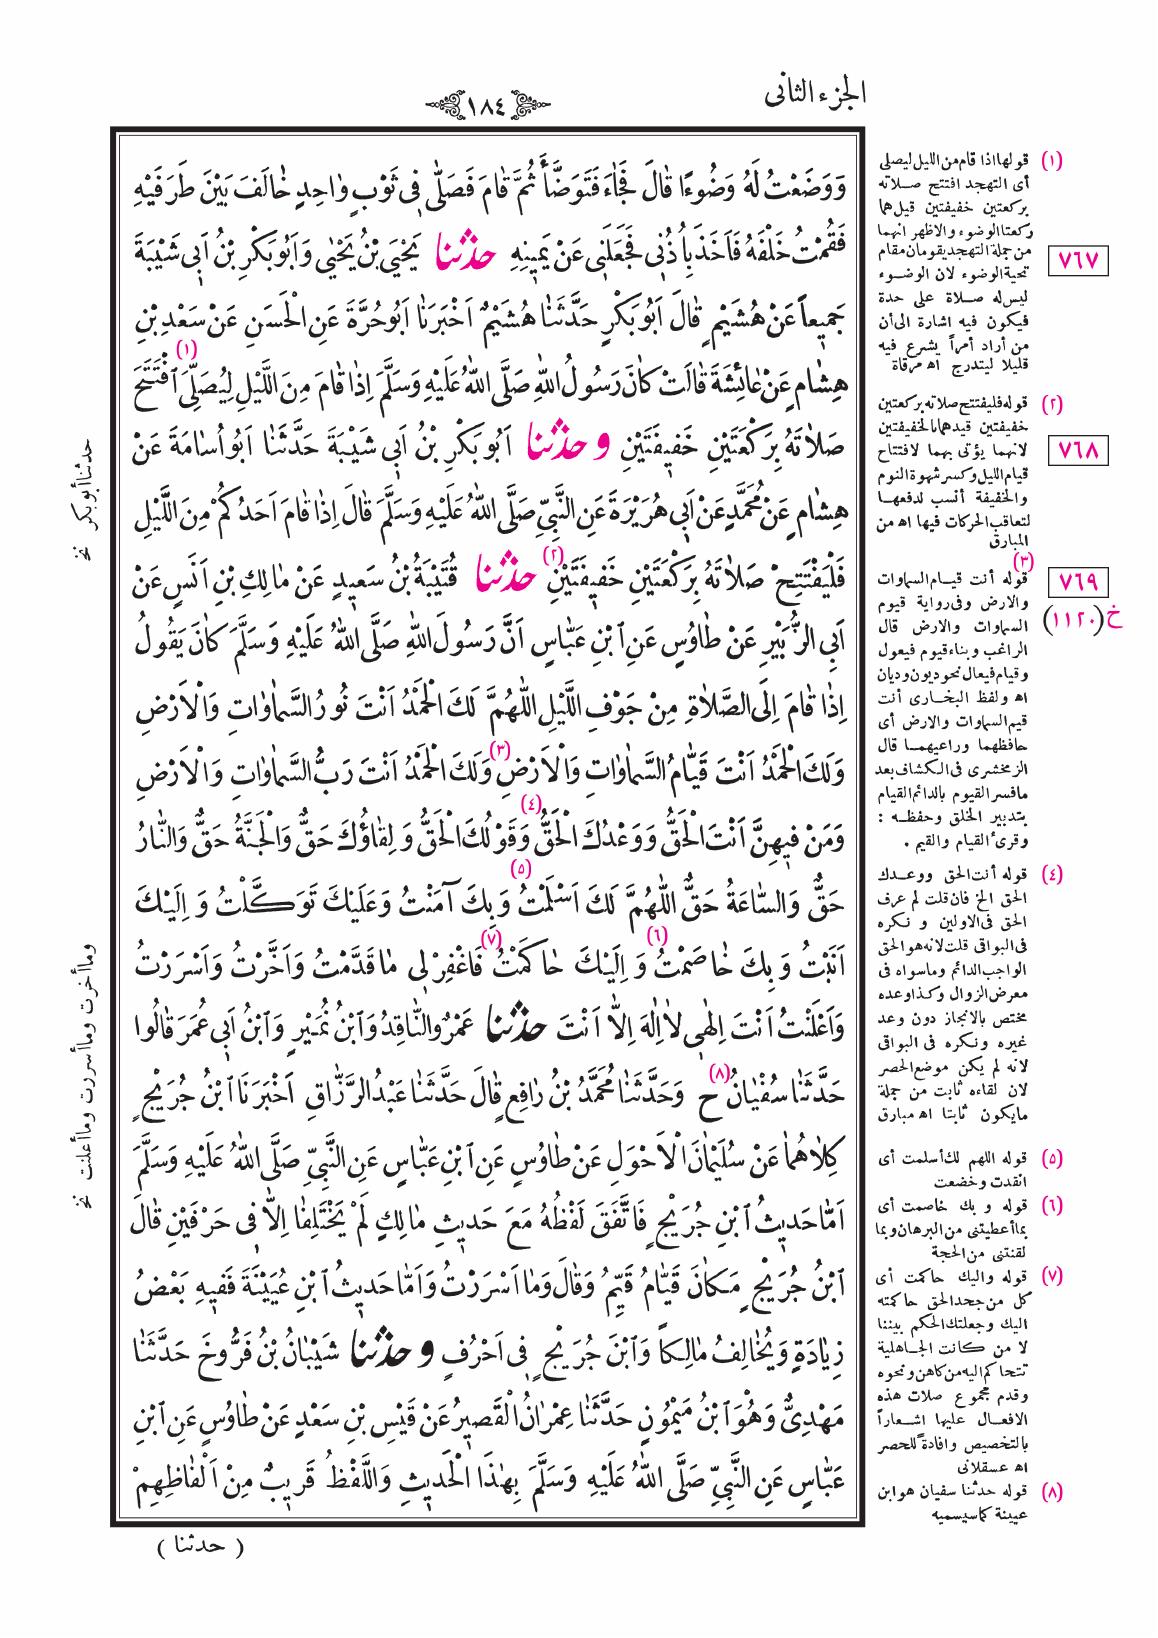 الجزء الثانى
١٨٤
وَوَضَعْتُ لَهُ وَضُوءًا قَالَ فَجَاءَ فَتَوَضَّأَ ثُمَّ قَامَ فَصَلَّى فِى ثَوْبٍ وَاحِدٍ خَالَفَ بَيْنَ طَرَفَيْهِ
فَقُمْتُ خَلْفَهُ فَاَخَذَ بِاُذُنِى فَجَعَلَنِى عَنْ يَمِينِهِ حدثنا يَحْيَى بْنُ يَحْيٰى وَاَبُو بَكْرِ بْنُ اَبِى شَيْبَةَ
جَمِيعاً عَنْ هُشَيْمٍ قَالَ اَبُو بَكْرٍ حَدَّثَنَا هُشَيْمٌ اَخْبَرَنَا اَبُو حُرَّةَ عَنِ الْحَسَنِ عَنْ سَعْدِ بْنِ
هِشَامٍ عَنْ عَائِشَةَ قَالَتْ كَانَ رَسُولُ اللّٰهِ صَلَّى اللّٰهُ عَلَيْهِ وَسَلَّمَ اِذَا قَامَ مِنَ اللَّيْلِ لِيُصَلِّىَ (١) اٱفْتَتَحَ
صَلَاتَهُ بِرَكْعَتَيْنِ خَفِيفَتَيْنِ و حدثنا اَبُو بَكْرِ بْنُ اَبِى شَيْبَةَ حَدَّثَنَا اَبُو اُسَامَةَ عَنْ
هِشَامٍ عَنْ مُحَمَّدٍ عَنْ اَبِى هُرَيْرَةَ عَنِ النَّبِىِّ صَلَّى اللّٰهُ عَلَيْهِ وَسَلَّمَ قَالَ اِذَا قَامَ اَحَدُكُمْ مِنَ اللَّيْلِ
فَلْيَفْتَتِحْ صَلَاتَهُ بِرَكْعَتَيْنِ خَفِيفَتَيْنِ (٢) حدثنا قُتَيْبَةُ بْنُ سَعِيدٍ عَنْ مَالِكِ بْنِ اَنَسٍ عَنْ
اَبِى الزُّبَيْرِ عَنْ طَاوُسٍ عَنِ ابْنِ عَبَّاسٍ اَنَّ رَسُولَ اللّٰهِ صَلَّى اللّٰهُ عَلَيْهِ وَسَلَّمَ كَانَ يَقُولُ
اِذَا قَامَ اِلَى الصَّلَاةِ مِنْ جَوْفِ اللَّيْلِ اَللّٰهُمَّ لَكَ الْحَمْدُ اَنْتَ نُورُ السَّمَاوَاتِ وَالْاَرْضِ
وَلَكَ الْحَمْدُ اَنْتَ قَيَّامُ السَّمَاوَاتِ وَالْاَرْضِ (٣) وَلَكَ الْحَمْدُ اَنْتَ رَبُّ السَّمَاوَاتِ وَالْاَرْضِ
وَمَنْ فِيهِنَّ اَنْتَ الْحَقُّ وَوَعْدُكَ الْحَقُّ (٤) وَقَوْلُكَ الْحَقُّ وَلِقَاؤُكَ حَقٌّ وَالْجَنَّةُ حَقٌّ وَالنَّارُ
حَقٌّ وَالسَّاعَةُ حَقٌّ اَللّٰهُمَّ لَكَ اَسْلَمْتُ (٥) وَبِكَ آمَنْتُ وَعَلَيْكَ تَوَكَّلْتُ وَاِلَيْكَ
اَنَبْتُ وَبِكَ خَاصَمْتُ (٦) وَاِلَيْكَ حَاكَمْتُ (٧) فَاغْفِرْ لِى مَا قَدَّمْتُ وَاَخَّرْتُ وَاَسْرَرْتُ
وَاَعْلَنْتُ اَنْتَ اِلٰهِى لَا اِلٰهَ اِلَّا اَنْتَ حدثنا عَمْرٌو النَّاقِدُ وَابْنُ نُمَيْرٍ وَابْنُ اَبِى عُمَرَ قَالُوا
حَدَّثَنَا سُفْيَانُ (٨) ح وَحَدَّثَنَا مُحَمَّدُ بْنُ رَافِعٍ قَالَ حَدَّثَنَا عَبْدُ الرَّزَّاقِ اَخْبَرَنَا ابْنُ جُرَيْجٍ
كِلَاهُمَا عَنْ سُلَيْمَانَ الْاَحْوَلِ عَنْ طَاوُسٍ عَنِ ابْنِ عَبَّاسٍ عَنِ النَّبِىِّ صَلَّى اللّٰهُ عَلَيْهِ وَسَلَّمَ
اَمَّا حَدِيثُ ابْنِ جُرَيْجٍ فَاتَّفَقَ لَفْظُهُ مَعَ حَدِيثِ مَالِكٍ لَمْ يَخْتَلِفَا اِلَّا فِى حَرْفَيْنِ قَالَ
ابْنُ جُرَيْجٍ مَكَانَ قَيَّامُ قَيِّمُ وَقَالَ وَمَا اَسْرَرْتُ وَاَمَّا حَدِيثُ ابْنِ عُيَيْنَةَ فَفِيهِ بَعْضُ
زِيَادَةٍ وَيُخَالِفُ مَالِكاً وَابْنَ جُرَيْجٍ فِى اَحْرُفٍ و حدثنا شَيْبَانُ بْنُ فَرُّوخَ حَدَّثَنَا
مَهْدِىٌّ وَهُوَ ابْنُ مَيْمُونٍ حَدَّثَنَا عِمْرَانُ الْقَصِيرُ عَنْ قَيْسِ بْنِ سَعْدٍ عَنْ طَاوُسٍ عَنِ ابْنِ
عَبَّاسٍ عَنِ النَّبِىِّ صَلَّى اللّٰهُ عَلَيْهِ وَسَلَّمَ بِهٰذَا الْحَدِيثِ وَاللَّفْظُ قَرِيبٌ مِنْ اَلْفَاظِهِمْ
( حدثنا )
(١) قولها اذا قام من الليل ليصلى
أى التهجد افتتح صلاته
بركعتين خفيفتين قيل هما
ركعتا الوضوء والاظهر انهما
من جملة التهجد يقومان مقام
تحية الوضوء لان الوضوء
ليس له صلاة على حدة
فيكون فيه اشارة الى أن
من أراد أمراً يشرع فيه
قليلا ليتدرج اه مرقاة
٧٦٧
(٢) قوله فليفتتح صلاته بركعتين
خفيفتين قيدهما بالخفيفتين
لانهما يؤتى بهما لافتتاح
قيام الليل وكسر شهوة النوم
والخفيفة أنسب لدفعها
لتعاقب الحركات فيها اه من
المبارق
٧٦٨
(٣) قوله أنت قيام السماوات
والارض وفى رواية قيوم
السماوات والارض قال
الراغب وبناء قيوم فيعول
وقيام فيعال نحو ديون وديان
اه ولفظ البخارى أنت
قيم السماوات والارض أى
حافظهما وراعيهما قال
الزمخشرى فى الكشاف بعد
ما فسر القيوم بالدائم القيام
بتدبير الخلق وحفظه :
وقرئ القيام والقيم .
٧٦٩
خ (١١٢٠)
(٤) قوله أنت الحق ووعدك
الحق الخ فان قلت لم عرف
الحق فى الاولين و نكره
فى البواقى قلت لانه هو الحق
الواجب الدائم وما سواه فى
معرض الزوال وكذا وعده
مختص بالانجاز دون وعد
غيره ونكره فى البواقى
لانه لم يكن موضع الحصر
لان لقاءه ثابت من جملة
ما يكون ثابتا اه مبارق
(٥) قوله اللهم لك أسلمت أى
انقدت وخضعت
(٦) قوله و بك خاصمت أى
بما أعطيتنى من البرهان وبما
لقنتنى من الحجة
(٧) قوله واليك حاكمت أى
كل من جحد الحق حاكمته
اليك وجعلتك الحكم بيننا
لا من كانت الجاهلية
تتحاكم اليه من كاهن ونحوه
وقدم مجموع صلات هذه
الافعال عليها اشعاراً
بالتخصيص وافادةً للحصر
اه عسقلانى
(٨) قوله حدثنا سفيان هو ابن
عيينة كما سيسميه
حدثنا أبو بكر نخ
وما أخرت وما أسررت وما أعلنت نخ